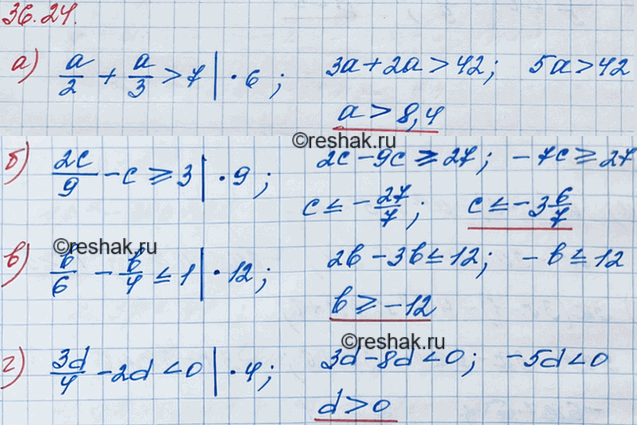 36.24.
а) a/2 + a/3 > 7 | · 6 ; 3a + 2a > 42; 5a > 42
a > 8,4
©reshak.ru
б) 2c/9 - c ≥ 3 | · 9 ; 2c - 9c ≥ 27; -7c ≥ 27
c ≤ - 27/7 ; c ≤ -3 6/7
©reshak.ru
в) b/6 - b/4 ≤ 1 | · 12 ; 2b - 3b ≤ 12; -b ≤ 12
b ≥ -12
©reshak.ru
г) 3d/4 - 2d < 0 | · 4; 3d - 8d < 0; -5d < 0
d > 0